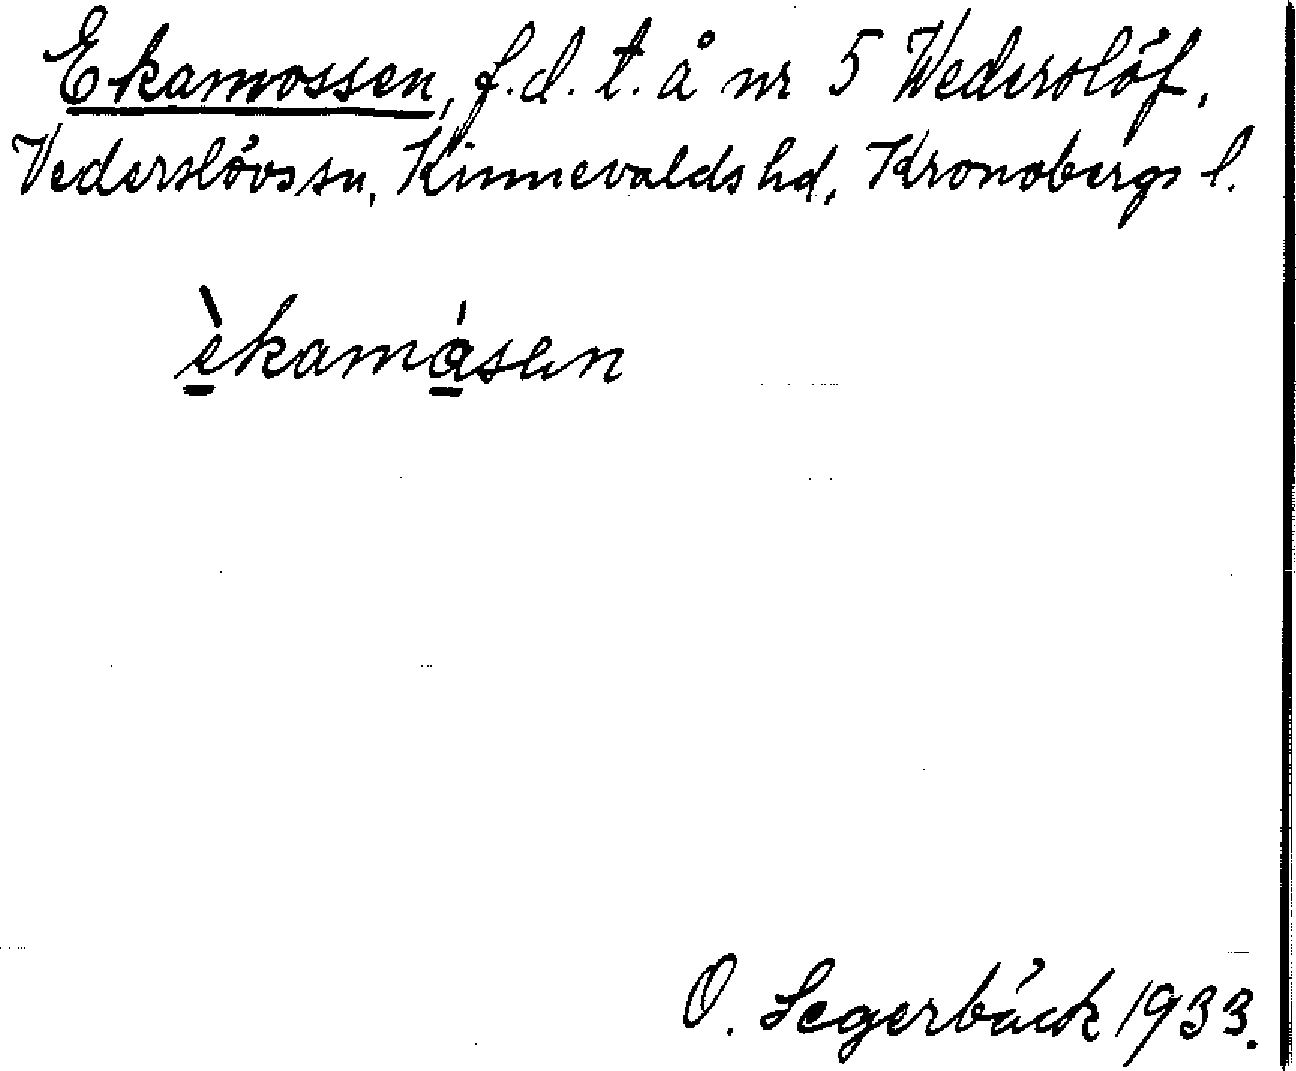 Ekamossen, f.d. t. å nr 5 Wederslöf,
Vederslövs sn, Kinnevalds hd, Kronobergs l.
èkamásen
O. Segerbäck 1933.